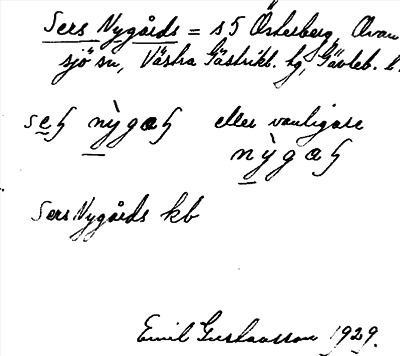 Sers Nygårds = s 5 Österberg, Ovan
sjö sn, Västra Gästrikl. hg, Gävleb. l.
seʂ nỳgaʂ eller vanligare
nỳgaʂ
Sers Nygårds kb
Emil Gustavsson 1929.